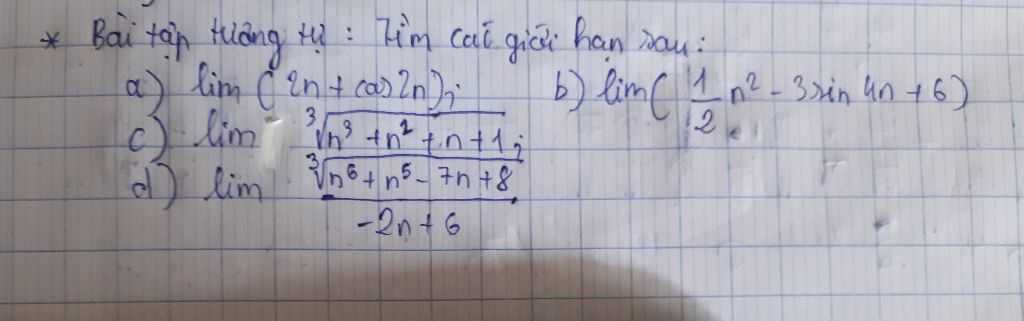 * Bài tập tương tự : Tìm các giới hạn sau:
a) lim (2n + cos2n); b) lim( 1/2 n² - 3sin 4n + 6)
c) lim ∛(n³ + n² + n + 1);
d) lim ∛(n⁶ + n⁵ - 7n + 8)
-2n + 6